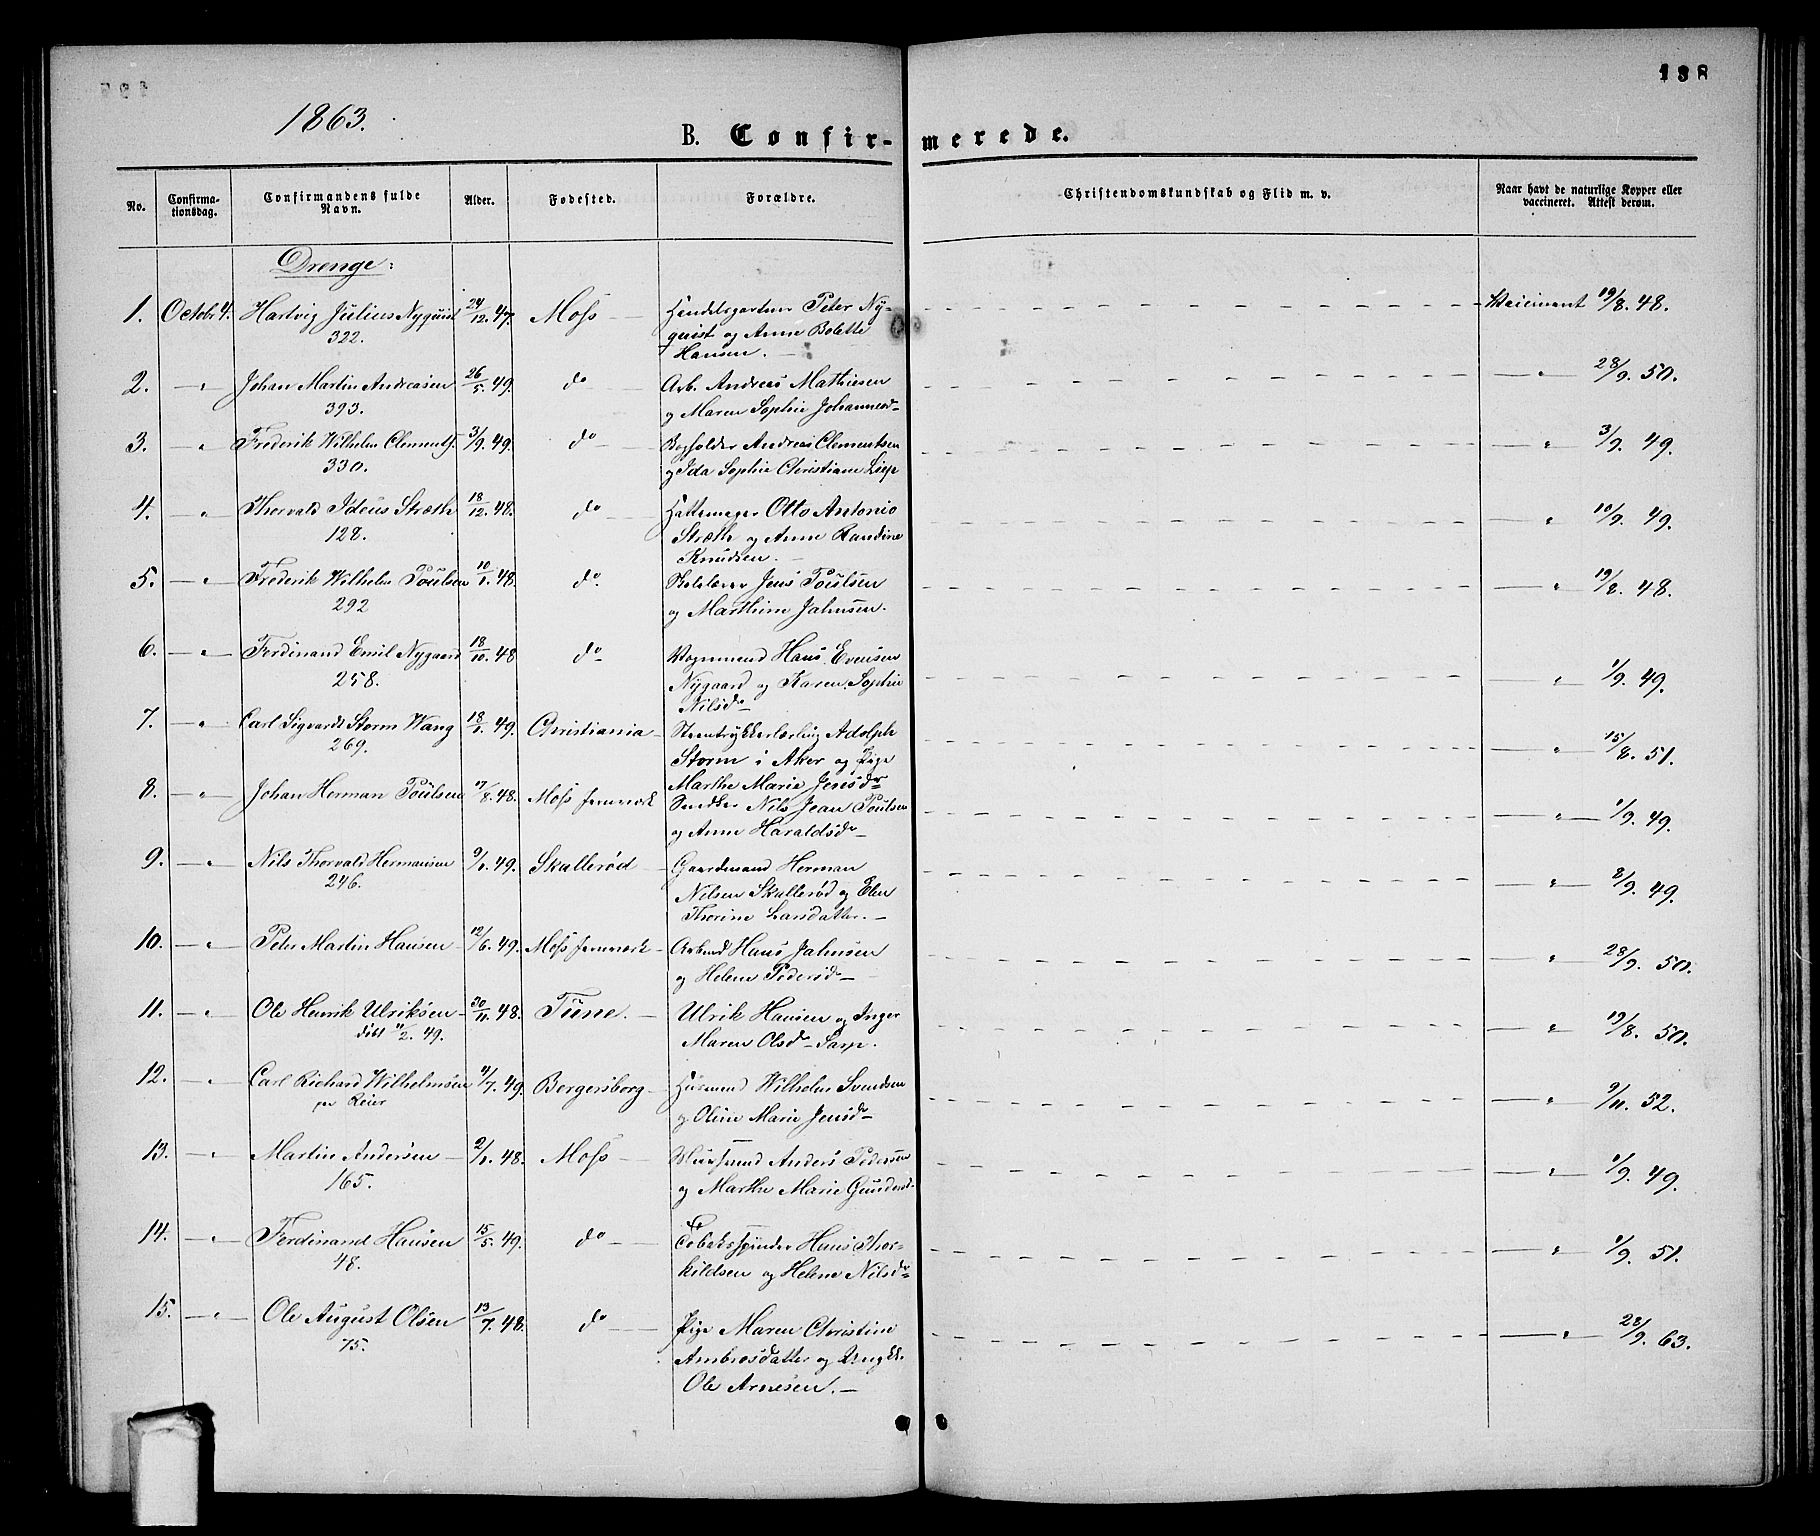 188
1863.
B. Confirmerede.
No.
Confirmationsdag.
Confirmandens fulde Navn.
Alder.
Fødested.
Forældre.
Christendomskundskab og Flid m. v.
Naar havt de naturlige Kopper eller vaccineret. Attest derom.
Drenge:
1. Octobr 4. Hartvig Julius Nyquist 24/12. 47. Moss Handelsgartner Peter Ny- Vaccineret 19/8. 48.
322. quist og Anne Bolette
Hansen.
2. — " Johan Martin Andreasen 26/5. 49. do Arb. Andreas Mathiesen — " — 28/9. 50.
393. og Maren Sophie Johannesd
3. — " Frederik Wilhelm Clements. 3/9. 49. do Bogholder Andreas Clementsen — " — 3/9. 49.
330. og Ida Sophie Christiane Liep
4. — " Thorvald Ideus Stræth 18/12. 48. do Hattemager Otto Antonio — " — 10/9. 49.
128. Stræth og Anne Randine
Knudsen.
5. — " Frederik Wilhelm Poulsen 10/1. 48. do. Skolelærer Jens Poulsen — " — 19/8. 48.
292 og Marthine Jahnsen.
6. — " Ferdinand Emil Nygaard 18/10. 48 do Vognmand Hans Evensen — " — 1/9. 49.
258. Nygaard og Karen Sophie
Nilsd
7. — " Carl Sigvardt Storm Wang 18/1. 49. Christiania Steentrykkerlærling Adolph — " — 15/8. 51.
269. Storm i Aker og Pige
Marthe Marie Jensd
8. — " Johan Herman Poulsen 17/8. 48. Moss Jernværk Snedker Nils Jean Poulsen — " — 1/9. 49.
og Anne Haraldsd
9. — " Nils Thorvald Hermansen 9/1. 49. Skallerød Gaardmand Herman — " — 8/9. 49.
246. Nilsen Skallerød og Elen
Thorine Larsdatter.
10. — " Peter Martin Hansen 12/6. 49. Moss Jernværk Arbmd Hans Jahnsen — " — 28/9. 50.
og Helene Pedersd
11. — " Ole Henrik Ulriksen 30/11. 48. Tune. Ulrik Hansen og Inger — " — 19/8. 50.
døbt 11/2. 49. Maren Olsd Sarp.
12. — " Carl Richard Wilhelmsen 11/7. 49. Bergersborg Husmand Wilhelm Svendsen — " — 9/11. 52.
Reier og Oline Marie Jensd
13. — " Martin Andersen 2/1. 48. Moss Anders Pedersen — " — 1/9. 49.
165. og Marthe Marie Gundersd.
14. — " Ferdinand Hansen 15/5. 49. do Tobaksspinder Hans Thor- — " — 1/9. 51.
48. kildsen og Helene Nilsd
15. — " Ole August Olsen 13/7. 48. do Pige Maren Christine — " — 28/9. 63.
75. Ambrosdatter og Ungk.
Ole Arnesen.